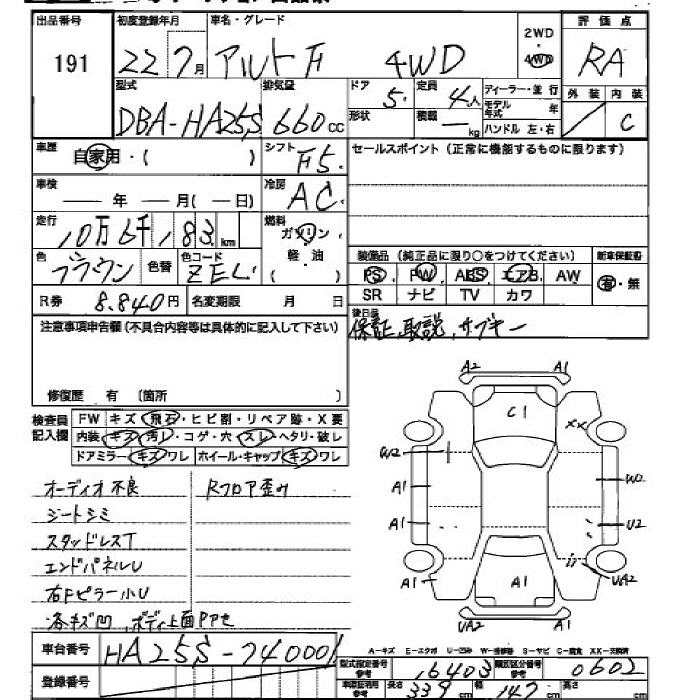 出品番号 初度登録年月 車名・グレード 2WD ・ 4WD 評価点
191 22 7月 アルト F 4WD RA
型式 排気量 ドア 定員 ディーラー・並行 外装 内装
DBA-HA25S 660cc 5. 4人 モデル年式 C
形状 積載 ― kg ハンドル 左・右
車歴 自家用・( ) シフト F5. セールスポイント (正常に機能するものに限ります)
車検 ― 年 ― 月(― 日) 冷房 AC.
走行 10万6千183km 燃料 ガソリン 軽油 ( )
色 ブラウン 色替 色コード ZEL 装備品 (純正品に限り○をつけてください) 新車保証書
PS PW ABS エアB AW 有・無
SR ナビ TV カワ
R券 8.840円 名変期限 月 日
後日品
保証、取説、サブキー
注意事項申告欄(不具合内容等は具体的に記入して下さい)
修復歴 有 〔箇所 〕
検査員記入欄 FW キズ・飛石・ヒビ割・リペア跡・X要
内装・キズ・汚れ・コゲ・穴・スレ・ヘタリ・破レ
ドアミラー・キズ・ワレ ホイール・キャップ・キズ・ワレ
オーディオ不良 Rフロア歪み
シートシミ
スタッドレスT
エンドパネルU
右Fピラー小U
各キズ凹、ボディ上面
A2 A1
C1
XX
W2 W2
A1
A1 U2
A1 A1 UA2
UA2 A1
A-キズ E-エクボ U-凹み W-補修跡 S-サビ C-腐食 XX-交換済
車台番号 HA25S-740001
登録番号
型式指定番号 参考 16403 類別区分番号 参考 0602
車検証明用 参考 長さ 339cm 幅 147cm 高さ cm